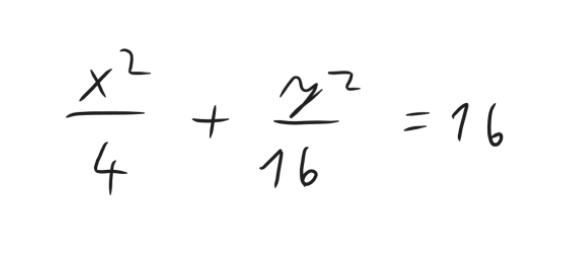 x²/4 + y²/16 = 16